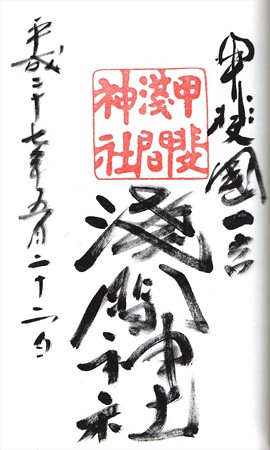 甲斐國一宮
甲斐
淺間
神社
淺間神社
平成二十七年五月二十二日